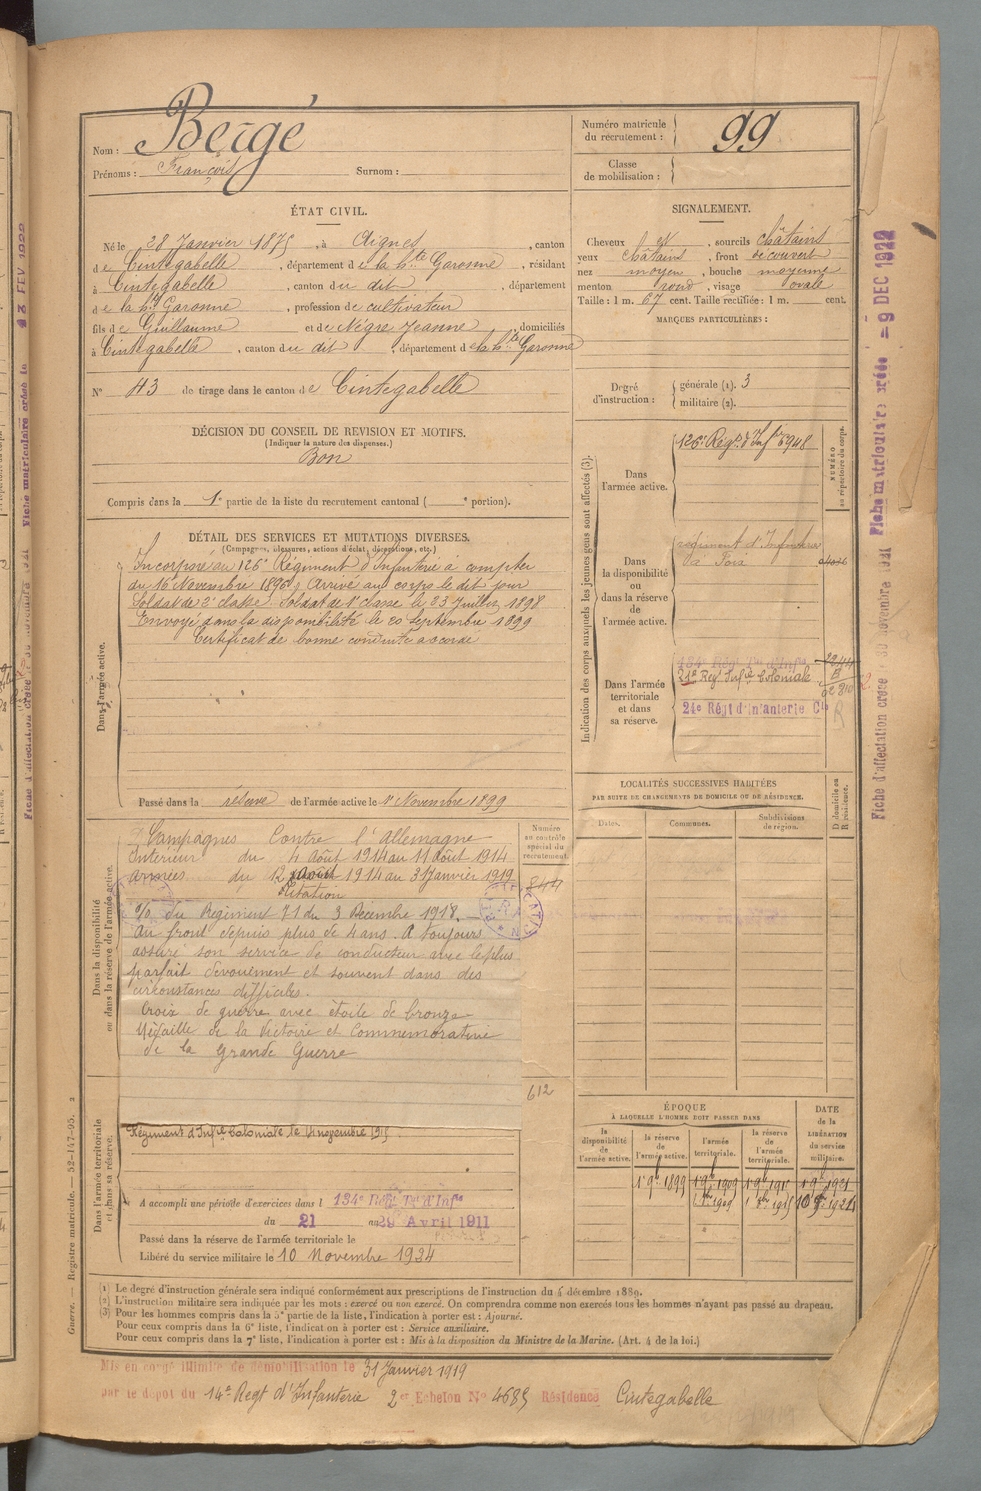 Nom : Bergé
Prénoms : François Surnom :
Numéro matricule du recrutement : 99
Classe de mobilisation :
ÉTAT CIVIL.
Né le 28 Janvier 1875, à Aignes, canton
de Cintegabelle, département de la Hte Garonne, résidant
à Cintegabelle, canton du dit, département
de la Hte Garonne, profession de cultivateur
fils de Guillaume et de Nègre Jeanne, domiciliés
à Cintegabelle, canton du dit, département de la Hte Garonne
N° 43 de tirage dans le canton de Cintegabelle
SIGNALEMENT.
Cheveux et, sourcils châtains
yeux châtains, front découvert
nez moyen, bouche moyenne
menton rond, visage ovale
Taille : 1 m. 67 cent. Taille rectifiée : 1 m. cent.
MARQUES PARTICULIÈRES :
Degré d'instruction : générale (1). 3
militaire (2).
DÉCISION DU CONSEIL DE REVISION ET MOTIFS.
(Indiquer la nature des dispenses.)
Bon
Compris dans la 1e partie de la liste du recrutement cantonal ( e portion).
DÉTAIL DES SERVICES ET MUTATIONS DIVERSES.
(Campagnes, blessures, actions d'éclat, décorations, etc.)
Dans l'armée active.
Incorporé au 126e Régiment d'Infanterie à compter
du 16 Novembre 1896. Arrivé au corps le dit jour
Soldat de 2e classe. Soldat de 1e classe le 23 Juillet 1898
Envoyé dans la disponibilité le 20 Septembre 1899
Certificat de bonne conduite accordé
Passé dans la réserve de l'armée active le 1 Novembre 1899
Indication des corps auxquels les jeunes gens sont affectés (3).
Dans l'armée active.
126e Régt d'Infie 5948
NUMÉRO au répertoire du corps.
Dans la disponibilité ou dans la réserve de l'armée active.
régiment d'Infanterie
de Foix
Dans l'armée territoriale et dans sa réserve.
134e Régt Tal d'Infie
21e Reg Infie Coloniale
24e Régt d'Infanterie Cle
LOCALITÉS SUCCESSIVES HABITÉES
PAR SUITE DE CHANGEMENTS DE DOMICILE OU DE RÉSIDENCE.
Dates. Communes. Subdivisions de région. D domicile ou R résidence.
Dans la disponibilité ou dans la réserve de l'armée active.
Numéro au contrôle spécial du recrutement.
844
Campagnes Contre l'Allemagne
Intérieur du 4 Août 1914 au 11 Août 1914
Armées du 12 Août 1914 au 31 Janvier 1919
Citation
O/ du Régiment 71 du 3 Décembre 1918.
Au front depuis plus de 4 ans. A toujours
assuré son service de conducteur avec le plus
parfait dévouement et souvent dans des
circonstances difficiles.
Croix de guerre avec étoile de bronze
Médaille de la Victoire et Commémorative
de la Grande Guerre
612
Dans l'armée territoriale et dans sa réserve.
Régiment d'Infie Coloniale le 4 novembre 1915
A accompli une période d'exercices dans l 134e Régt Tal d'Infie
du 21 au 29 Avril 1911
Passé dans la réserve de l'armée territoriale le
Libéré du service militaire le 10 Novembre 1934
ÉPOQUE À LAQUELLE L'HOMME DOIT PASSER DANS
la disponibilité de l'armée active. la réserve de l'armée active. l'armée territoriale. la réserve de l'armée territoriale.
DATE de la LIBÉRATION du service militaire.
1e 9e 1899 1e 9e 1909 1e 9e 1915 1e 9e 1921
(1) Le degré d'instruction générale sera indiqué conformément aux prescriptions de l'instruction du 4 décembre 1889.
(2) L'instruction militaire sera indiquée par les mots : exercé ou non exercé. On comprendra comme non exercés tous les hommes n'ayant pas passé au drapeau.
(3) Pour les hommes compris dans la 5e partie de la liste, l'indication à porter est : Ajourné.
Pour ceux compris dans la 6e liste, l'indication à porter est : Service auxiliaire.
Pour ceux compris dans la 7e liste, l'indication à porter est : Mis à la disposition du Ministre de la Marine. (Art. 4 de la loi.)
Mis en congé illimité de démobilisation le 31 Janvier 1919
par le dépot du 14e Regt d'Infanterie 2er Echelon N° 4685 Résidence Cintegabelle
Guerre. — Registre matricule. — 52-147-95. 2
Fiche matriculaire créée
- 9 DEC 1922
Fiche d'affectation créée le 30 novembre 1921